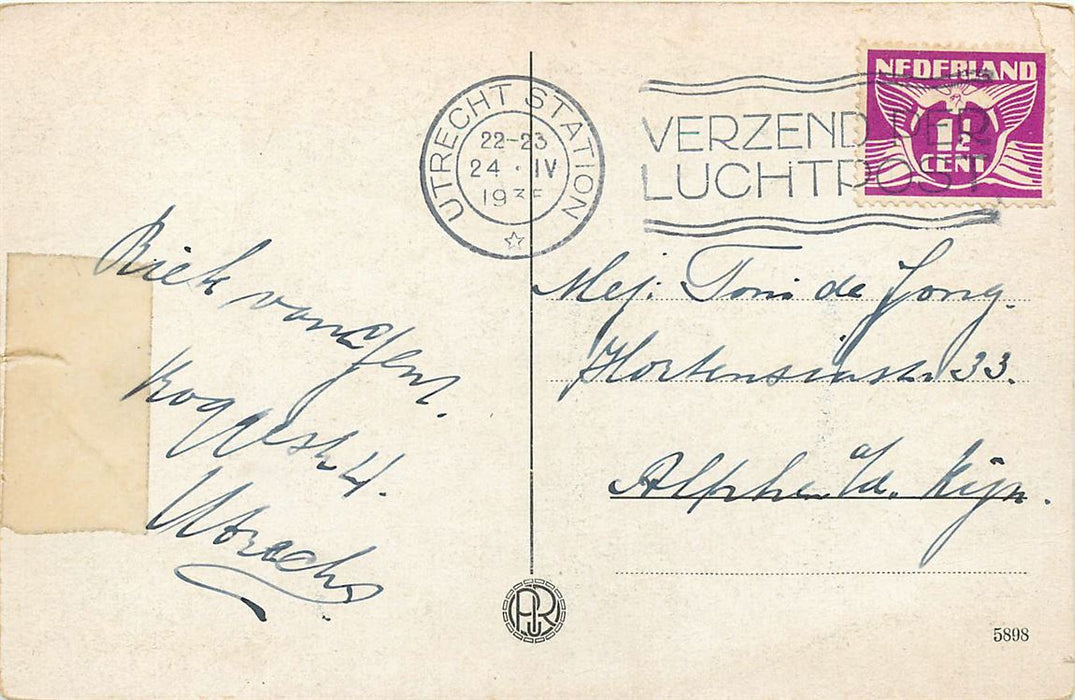 UTRECHT STATION
22-23
24 · IV
193
VERZEND PER
LUCHTPOST
NEDERLAND
1½
CENT
Riek van
Utrecht
Mej. Toni de Jong.
Hortensiastr. 33.
Alphen a/d. Rijn.
5898